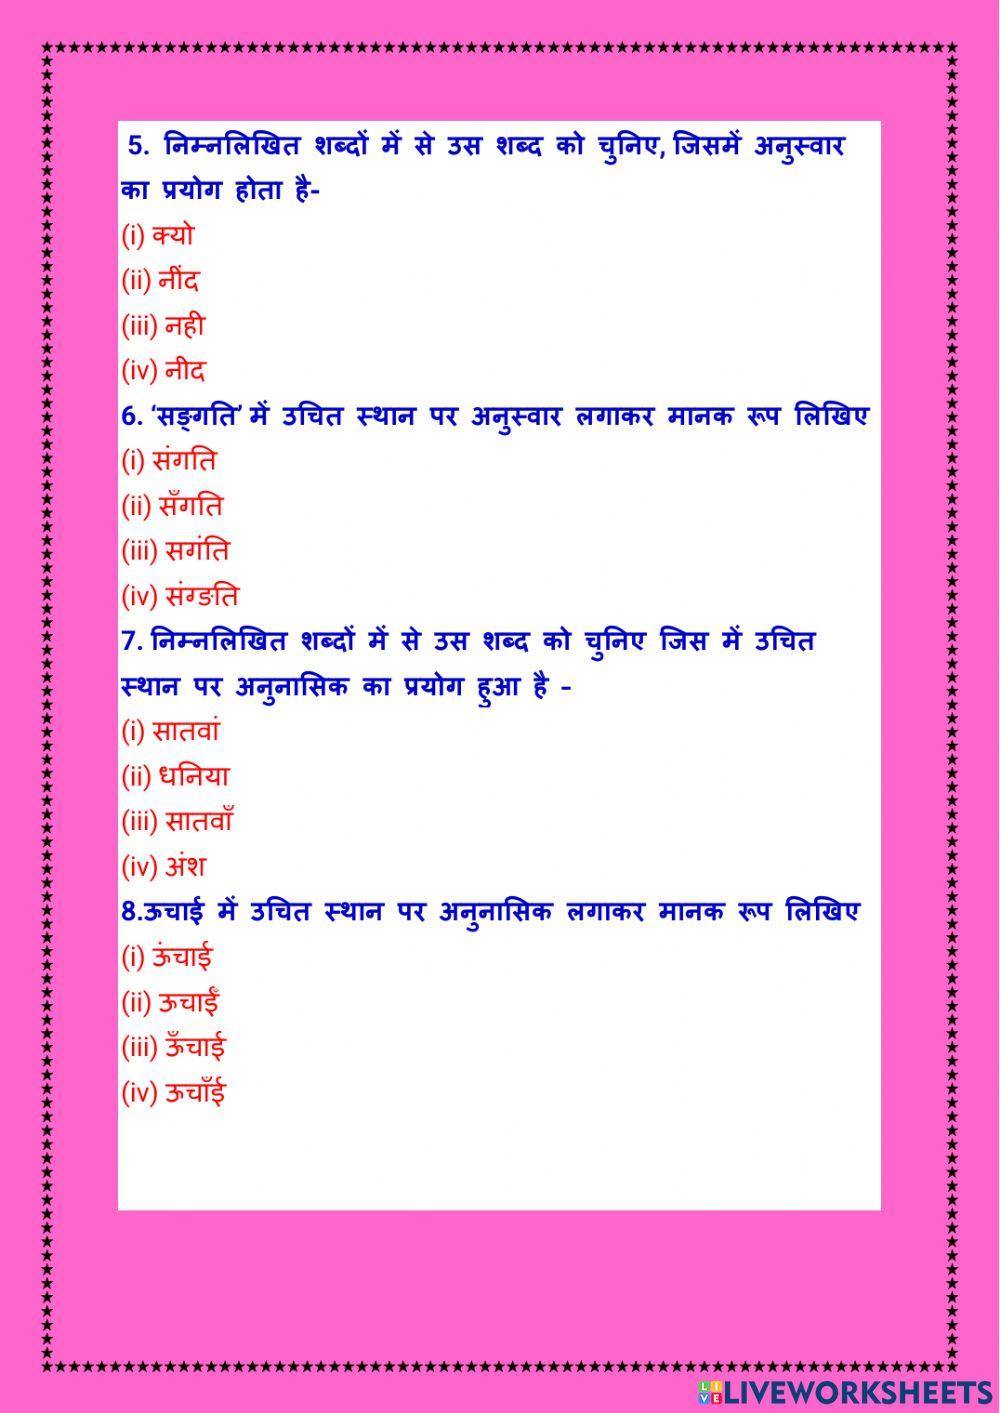 5. निम्नलिखित शब्दों में से उस शब्द को चुनिए, जिसमें अनुस्वार
का प्रयोग होता है-
(i) क्यो
(ii) नींद
(iii) नही
(iv) नीद
6. ‘सङ्गति’ में उचित स्थान पर अनुस्वार लगाकर मानक रूप लिखिए
(i) संगति
(ii) सँगति
(iii) सगंति
(iv) संग्ङति
7. निम्नलिखित शब्दों में से उस शब्द को चुनिए जिस में उचित
स्थान पर अनुनासिक का प्रयोग हुआ है –
(i) सातवां
(ii) धनिया
(iii) सातवाँ
(iv) अंश
8.ऊचाई में उचित स्थान पर अनुनासिक लगाकर मानक रूप लिखिए
(i) ऊंचाई
(ii) ऊचाईँ
(iii) ऊँचाई
(iv) ऊचाँई
LIVE LIVEWORKSHEETS